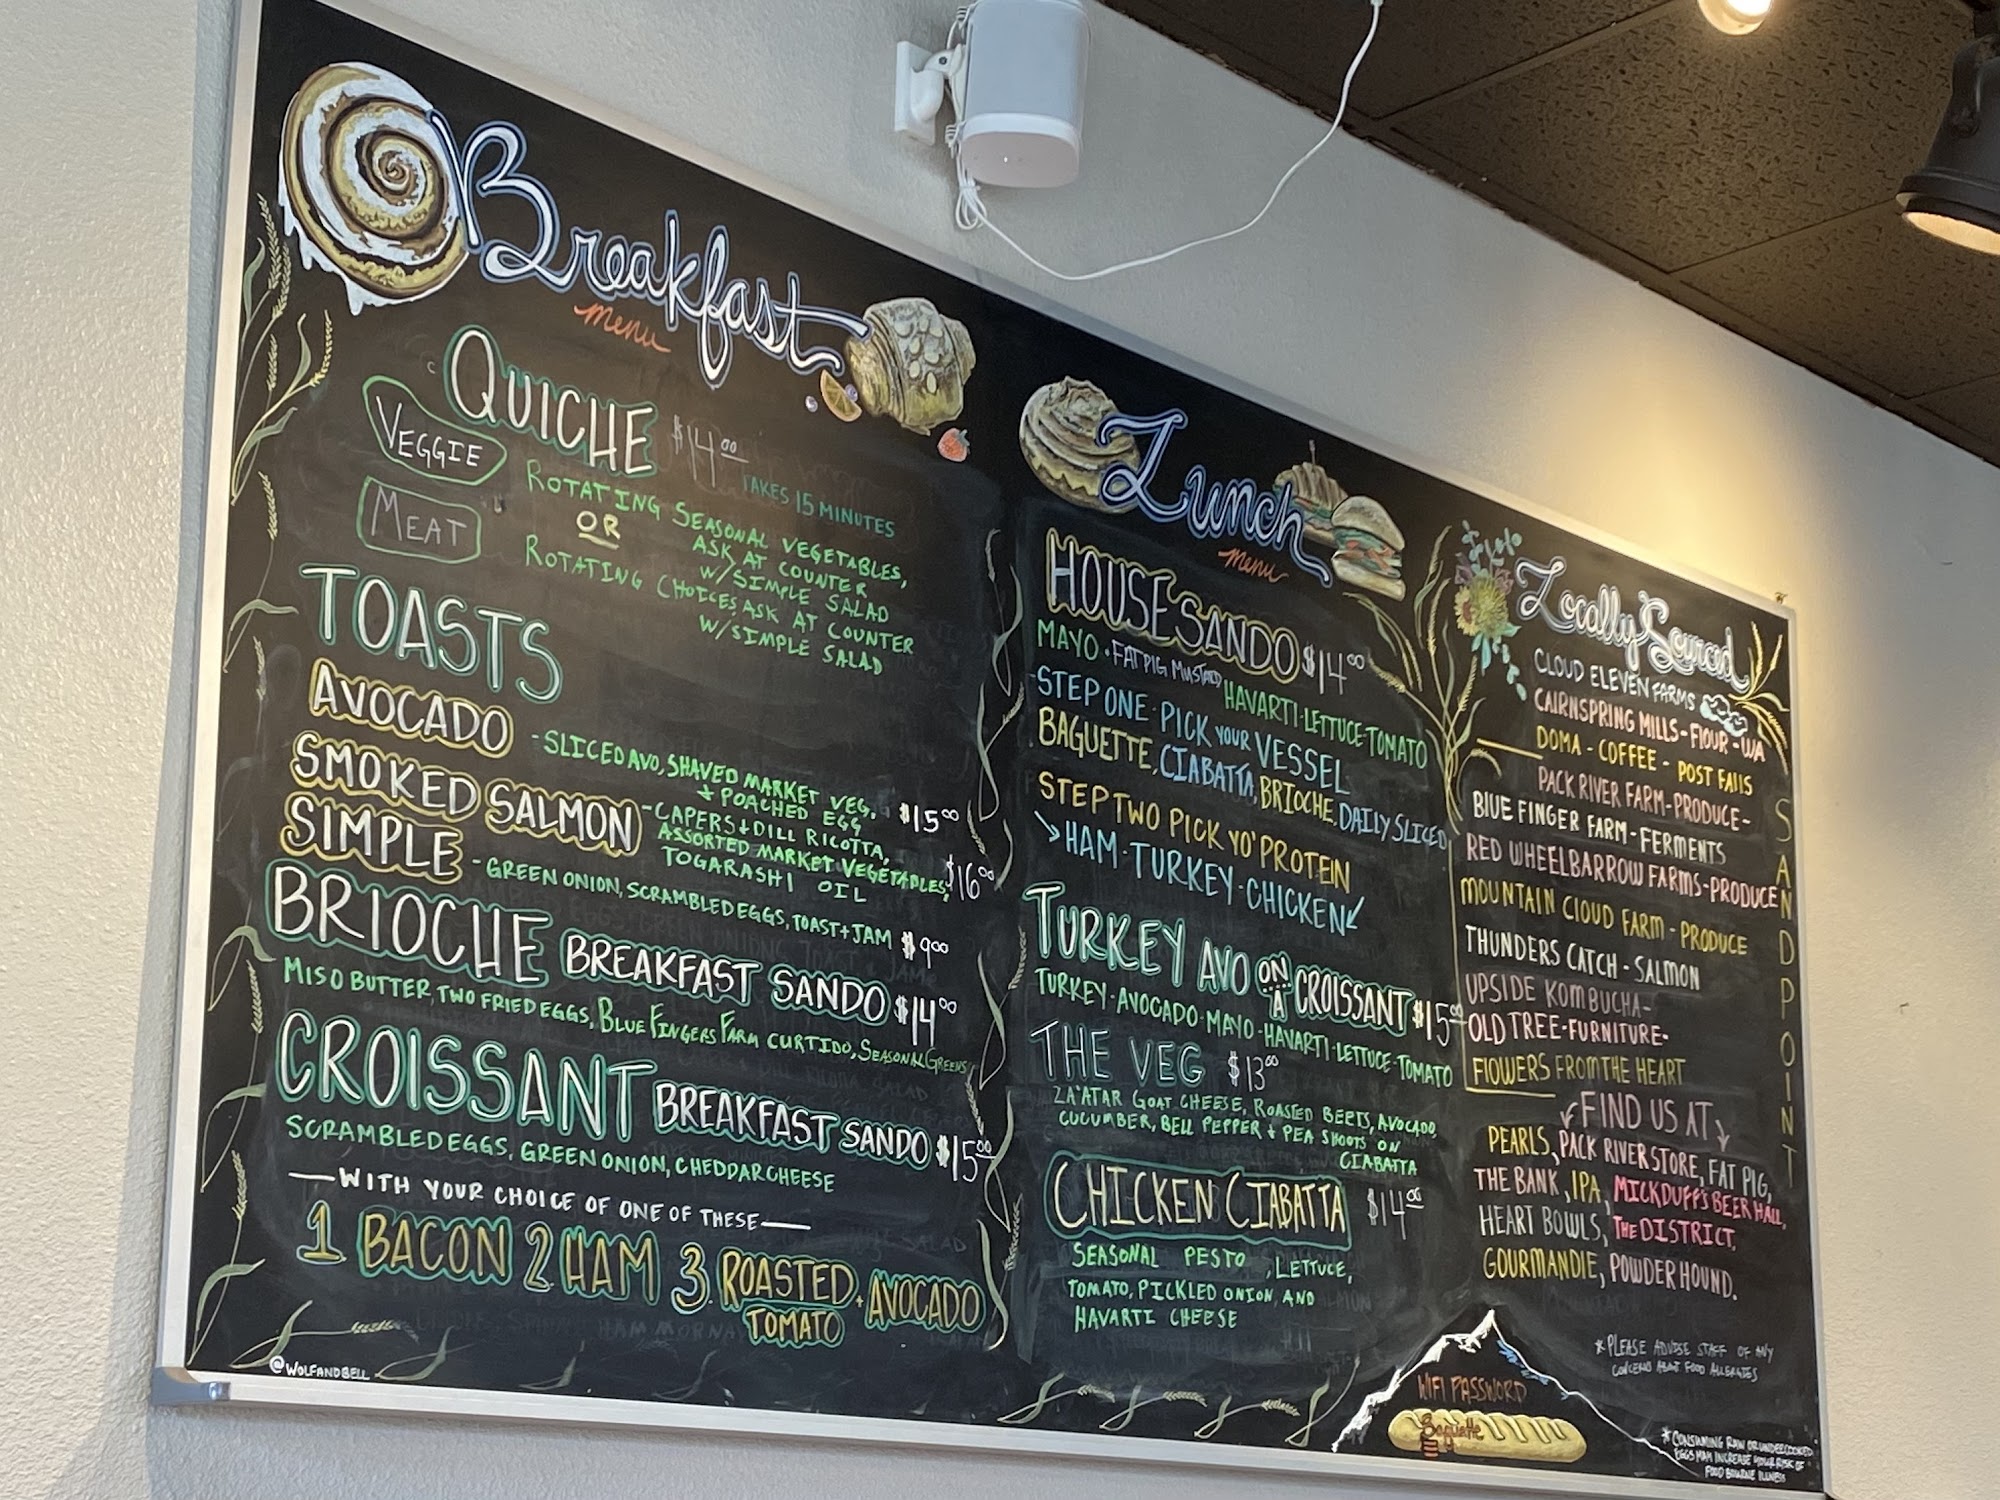 Breakfast
menu
QUICHE $14.00
TAKES 15 MINUTES
VEGGIE
ROTATING SEASONAL VEGETABLES,
ASK AT COUNTER
W/SIMPLE SALAD
OR
MEAT
ROTATING CHOICES, ASK AT COUNTER
W/SIMPLE SALAD
TOASTS
AVOCADO
- SLICED AVO, SHAVED MARKET VEG,
+ POACHED EGG $15.00
SMOKED SALMON
- CAPERS + DILL RICOTTA,
ASSORTED MARKET VEGETABLES,
TOGARASHI OIL $16.00
SIMPLE
- GREEN ONION, SCRAMBLED EGGS, TOAST + JAM $9.00
BRIOCHE BREAKFAST SANDO $14.00
MISO BUTTER, TWO FRIED EGGS, BLUE FINGERS FARM CURTIDO, SEASONAL GREENS
CROISSANT BREAKFAST SANDO $15.00
SCRAMBLED EGGS, GREEN ONION, CHEDDAR CHEESE
—WITH YOUR CHOICE OF ONE OF THESE—
1 BACON 2. HAM 3. ROASTED TOMATO + AVOCADO
@WOLFANDBELL
Lunch
menu
HOUSE SANDO $14.00
MAYO • FAT PIG MUSTARD HAVARTI • LETTUCE • TOMATO
- STEP ONE - PICK YOUR VESSEL
BAGUETTE, CIABATTA, BRIOCHE, DAILY SLICED
STEP TWO PICK YO' PROTEIN
HAM - TURKEY - CHICKEN
TURKEY AVO ON A CROISSANT $15.00
TURKEY • AVOCADO • MAYO • HAVARTI • LETTUCE • TOMATO
THE VEG $13.00
ZA'ATAR GOAT CHEESE, ROASTED BEETS, AVOCADO,
CUCUMBER, BELL PEPPER + PEA SHOOTS ON
CIABATTA
CHICKEN CIABATTA $14.00
SEASONAL PESTO, LETTUCE,
TOMATO, PICKLED ONION, AND
HAVARTI CHEESE
Locally Sourced
CLOUD ELEVEN FARMS
CAIRNSPRING MILLS - FLOUR - WA
DOMA - COFFEE - POST FALLS
PACK RIVER FARM - PRODUCE -
BLUE FINGER FARM - FERMENTS
RED WHEELBARROW FARMS - PRODUCE
MOUNTAIN CLOUD FARM - PRODUCE
THUNDERS CATCH - SALMON
UPSIDE KOMBUCHA -
OLD TREE - FURNITURE -
FLOWERS FROM THE HEART
SANDPOINT
FIND US AT
PEARLS, PACK RIVER STORE, FAT PIG,
THE BANK, IPA, MICKDUFF'S BEER HALL,
HEART BOWLS, THE DISTRICT,
GOURMANDIE, POWDER HOUND.
*PLEASE ADVISE STAFF OF ANY
CONCERNS ABOUT FOOD ALLERGIES
WIFI PASSWORD
Baguette
*CONSUMING RAW OR UNDERCOOKED
EGGS MAY INCREASE YOUR RISK OF
FOOD BOURNE ILLNESS